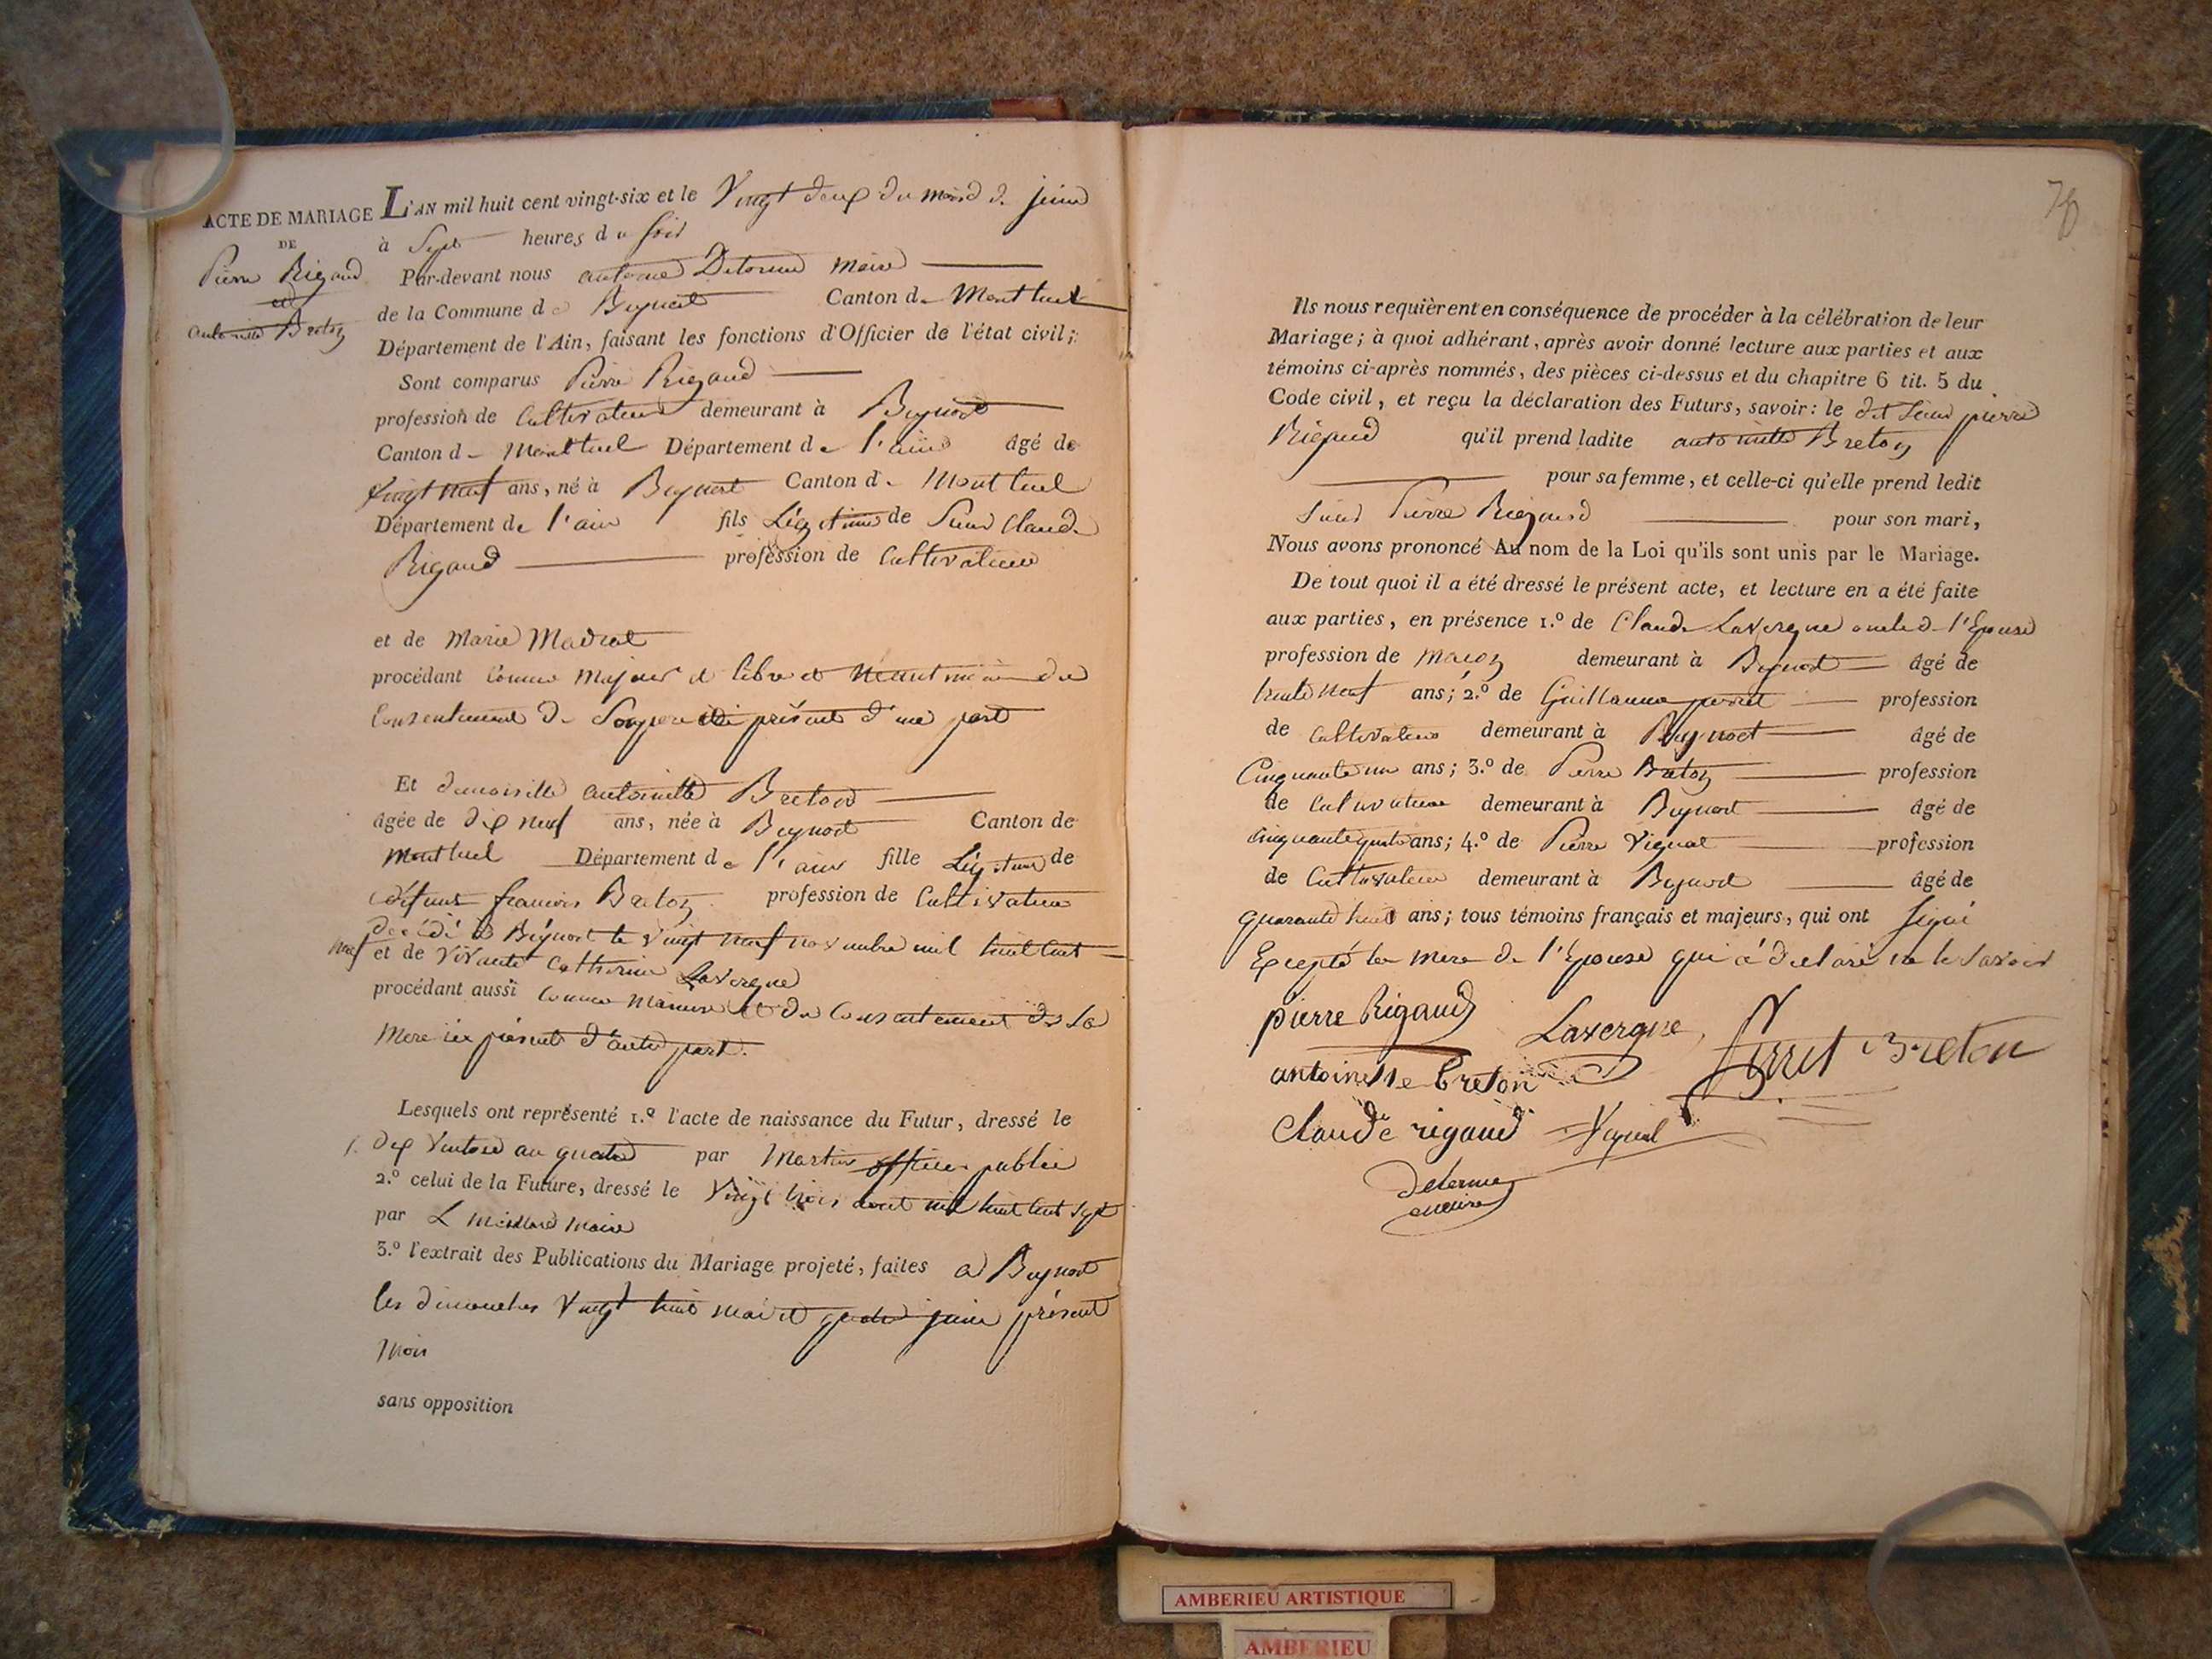 ACTE DE MARIAGE
DE
Pierre Rigaud
et
antoinette Breton
L'AN mil huit cent vingt-six et le Vingt deux du mois de juin
à Sept heures du soir
Par-devant nous antoine Detorme Maire
de la Commune de Beynost Canton de Montluel
Département de l'Ain, faisant les fonctions d'Officier de l'état civil;
Sont comparus Pierre Rigaud
profession de Cultivateur demeurant à Beynost
Canton de Montluel Département de l'ain âgé de
Vingt neuf ans, né à Beynost Canton de Montluel
Département de l'ain fils Légitime de Sieur Claude
Rigaud profession de Cultivateur
et de Marie
procédant Comme Majeur et libre et du
Consentement de Son pere ici présent d'une part
Et demoiselle antoinette Breton
âgée de dix neuf ans, née à Beynost Canton de
Montluel Département de l'ain fille Légitime de
défunt françois Breton profession de Cultivateur
Décédé à Beynost le vingt neuf novembre mil huit cent
neuf et de vivante Catherine Lavergne
procédant aussi Comme Mineure et du Consentement de Sa
Mere ici présente d'autre part.
Lesquels ont représenté 1.º l'acte de naissance du Futur, dressé le
dix Ventose an quatre par Martin officier public
2.º celui de la Future, dressé le Vingt trois aout mil huit cent sept
par L Maire
3.º l'extrait des Publications du Mariage projeté, faites a Beynost
les dimanches Vingt huit mai et quatre juin présent
Mois
sans opposition
76
Ils nous requièrent en conséquence de procéder à la célébration de leur
Mariage; à quoi adhérant, après avoir donné lecture aux parties et aux
témoins ci-après nommés, des pièces ci-dessus et du chapitre 6 tit. 5 du
Code civil, et reçu la déclaration des Futurs, savoir: le dit Sieur pierre
Rigaud qu'il prend ladite antoinette Breton
pour sa femme, et celle-ci qu'elle prend ledit
Sieur Pierre Rigaud pour son mari,
Nous avons prononcé Au nom de la Loi qu'ils sont unis par le Mariage.
De tout quoi il a été dressé le présent acte, et lecture en a été faite
aux parties, en présence 1.º de Claude Lavergne oncle de l'Epouse
profession de Macon demeurant à Beynost âgé de
trente neuf ans; 2.º de Guillaume perret profession
de Cultivateur demeurant à Beynost âgé de
Cinquante un ans; 3.º de Pierre Breton profession
de Cultivateur demeurant à Beynost âgé de
cinquante quatre ans; 4.º de Pierre Vignat profession
de Cultivateur demeurant à Beynost âgé de
quarante huit ans; tous témoins français et majeurs, qui ont signé
Excepté la mere de l'Epouse qui a déclaré ne le savoir
pierre Rigaud
Lavergne
Perret Breton
antoinette breton
claude rigaud Vignat
detorme
maire
AMBERIEU ARTISTIQUE
AMBERIEU